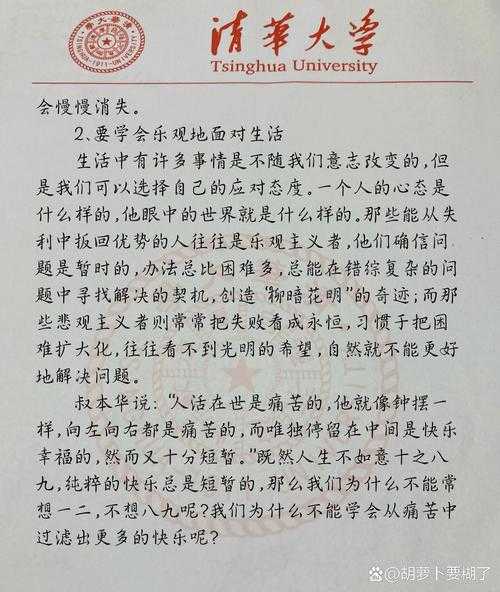 清华大学
Tsinghua University
TSINGHUA UNIVERSITY
-1911-
会慢慢消失。
2、要学会乐观地面对生活
生活中有许多事情是不随我们意志改变的,但
是我们可以选择自己的应对态度。一个人的心态是
什么样的,他眼中的世界就是什么样的。那些能从失
利中扳回优势的人往往是乐观主义者,他们确信问
题是暂时的,办法总比困难多,总能在错综复杂的问
题中寻找解决的契机,创造“柳暗花明”的奇迹;而那
些悲观主义者则常常把失败看成永恒,习惯于把困
难扩大化,往往看不到光明的希望,自然就不能更好
地解决问题。
叔本华说:“人活在世是痛苦的,他就像钟摆一
样,向左向右都是痛苦的,而唯独停留在中间是快乐
幸福的,然而又十分短暂。”既然人生不如意十之八
九,纯粹的快乐总是短暂的,那么我们为什么不能常
想一二,不想八九呢?我们为什么不能学会从痛苦中
过滤出更多的快乐呢?
@胡萝卜要糊了